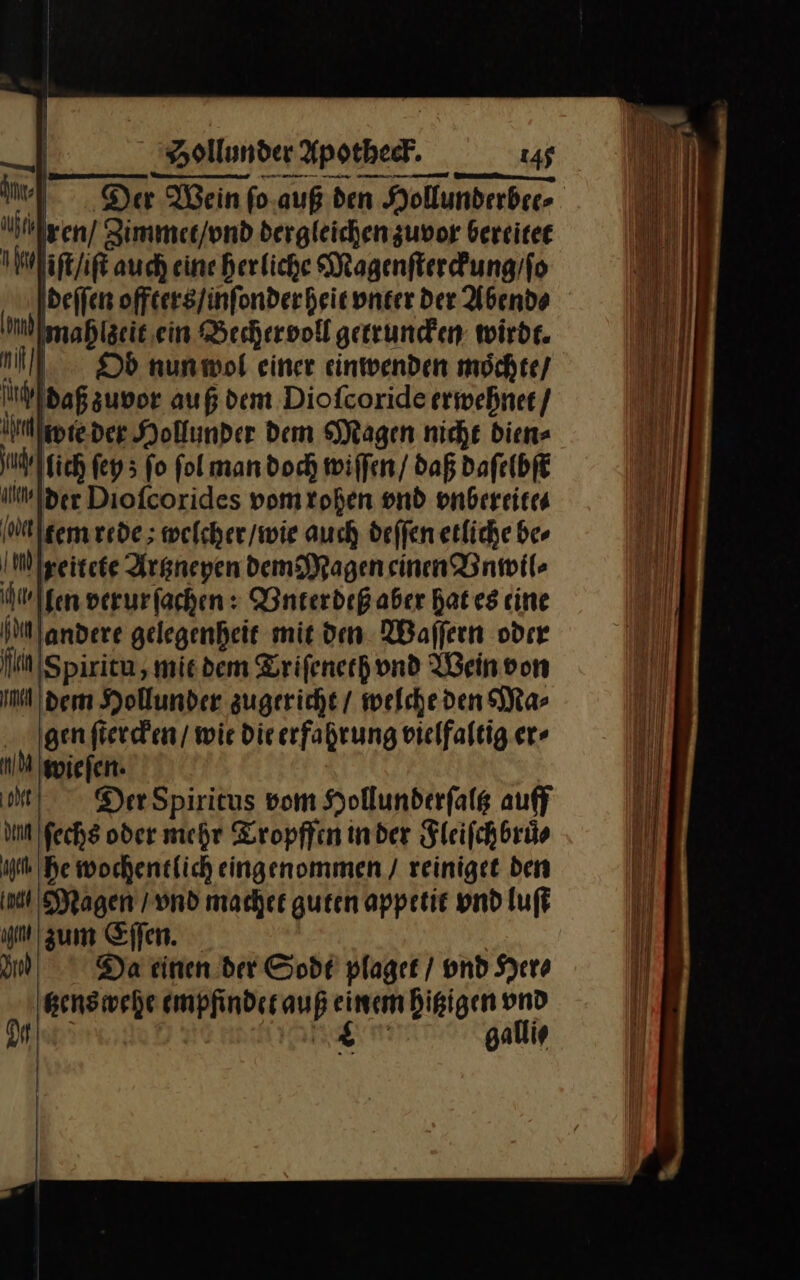 Hollunder Apotheck. 145
Der Wein ſo auß den Hollunderbee⸗
ren/ Zimmet/vnd dergleichen zuvor bereitet
iſt/iſt auch eine herliche Magenſterckung/ſo
deſſen offters/inſonderheit vnter der Abend⸗
mahlzeit ein Bechervoll getruncken wirdt.
Ob nun wol einer einwenden möchte/
daß zuvor auß dem Dioſcoride erwehnet/
wie der Hollunder dem Magen nicht dien⸗
lich ſey; ſo ſol man doch wiſſen/ daß daſelbſt
der Dioſcorides vom rohen vnd vnbereite⸗
tem rede; welcher/wie auch deſſen etliche be⸗
reitete Artzneyen dem Magen einen Vnwil⸗
len verurſachen: Vnterdeß aber hat es eine
andere gelegenheit mit den Waſſern oder
Spiritu, mit dem Triſeneth vnd Wein von
dem Hollunder zugericht/ welche den Ma⸗
gen ſtercken/ wie die erfahrung vielfaltig er⸗
wieſen.
Der Spiritus vom Hollunderſaltz auff
ſechs oder mehr Tropffen in der Fleiſchbrü⸗
he wochentlich eingenommen/ reiniget den
Magen/ vnd machet guten appetit vnd luſt
zum Eſſen.
Da einen der Sodt plaget/ vnd Her⸗
tzenswehe empfindet auß einem hitzigen vnd
L galli⸗